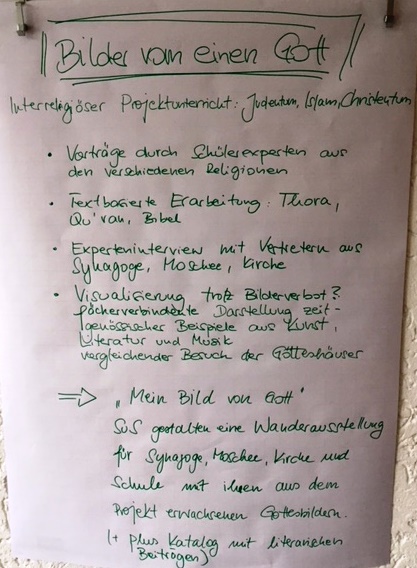 Bilder vom einen Gott
Interreligiöser Projektunterricht: Judentum, Islam, Christentum
• Vorträge durch Schülerexperten aus
den verschiedenen Religionen
• Textbasierte Erarbeitung: Thora,
Qu'ran, Bibel
• Experteninterview mit Vertretern aus
Synagoge, Moschee, Kirche
• Visualisierung trotz Bilderverbot?
fächerverbindende Darstellung zeit-
genössischer Beispiele aus Kunst,
Literatur und Musik
vergleichender Besuch der Gotteshäuser
⇒ „Mein Bild von Gott"
SuS gestalten eine Wanderausstellung
für Synagoge, Moschee, Kirche und
Schule mit ihren aus dem
Projekt erwachsenen Gottesbildern.
(+ plus Katalog mit literarischen
Beiträgen)